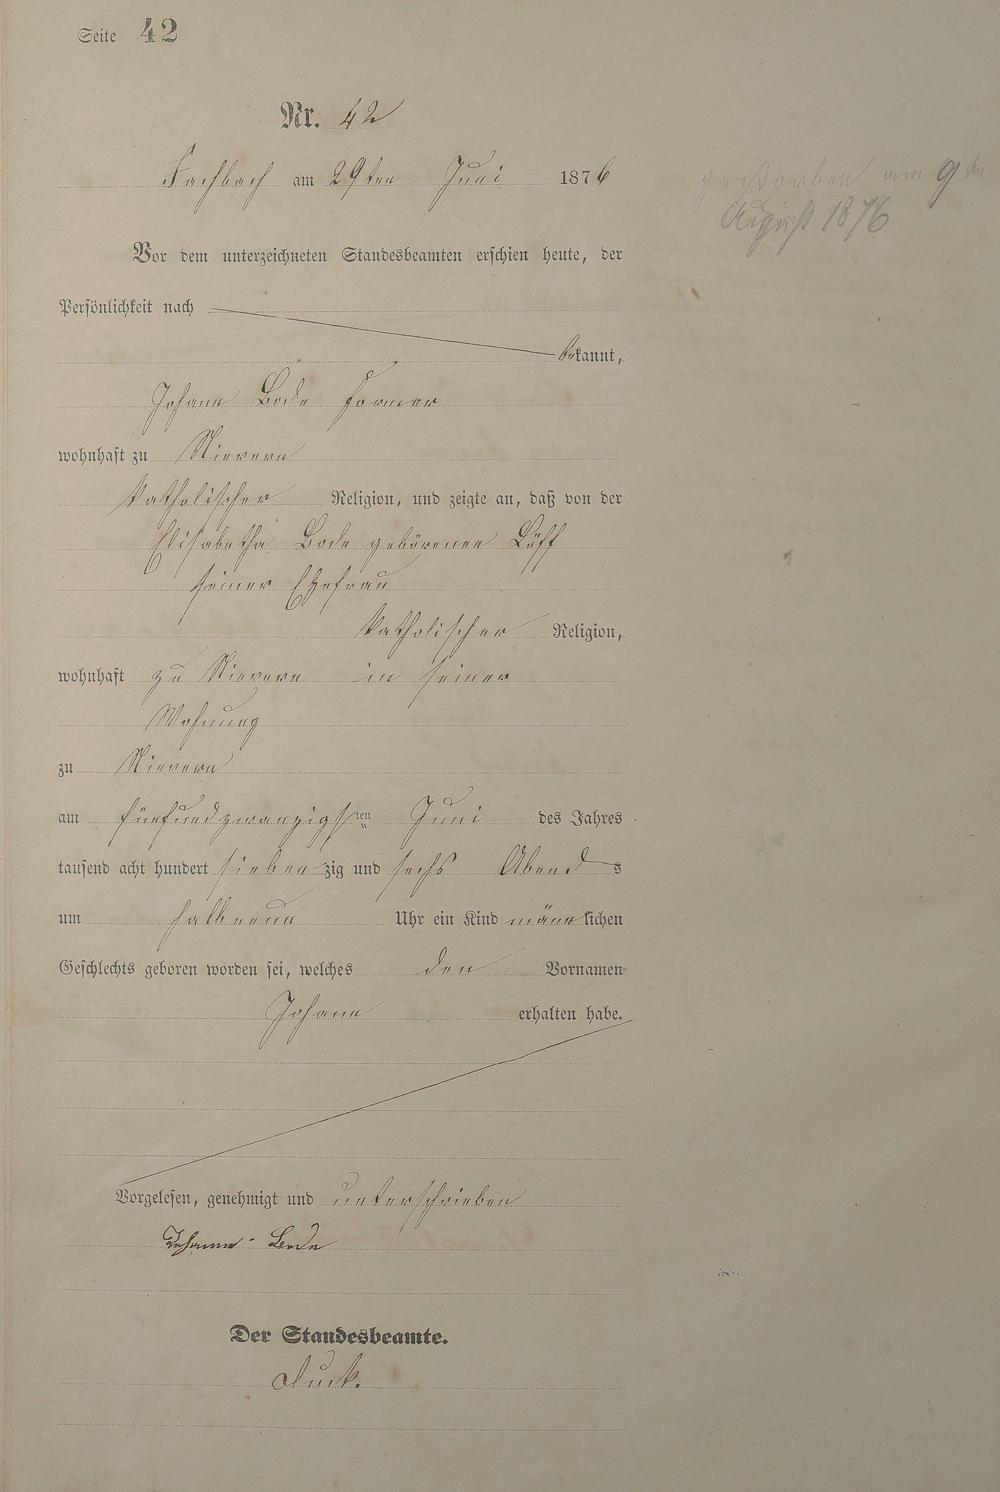 Seite 42
Nr. 42
gestorben am 9ten
August 1876
Fachbach am 29ten Juni 1876
Vor dem unterzeichneten Standesbeamten erschien heute, der
Persönlichkeit nach
bekannt,
Johann Bode Former
wohnhaft zu Nievern
katholischer Religion, und zeigte an, daß von der
Elisabetha Bode geborenen Löff
seiner Ehefrau
katholischer Religion,
wohnhaft zu Nievern in seiner
Wohnung
zu Nievern
am fünfundzwanzigsten Juni des Jahres
tausend acht hundert siebenzig und sechs Abends
um halb neun Uhr ein Kind männlichen
Geschlechts geboren worden sei, welches den Vornamen
Johann erhalten habe.
Vorgelesen, genehmigt und unterschrieben
Johann Bode
Der Standesbeamte.